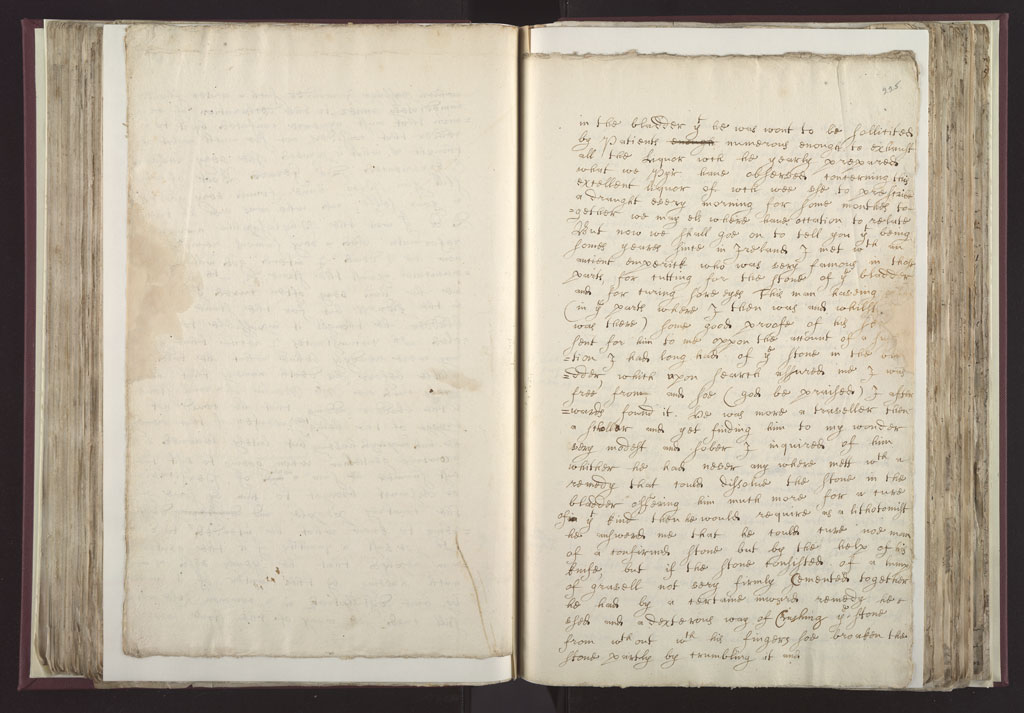 225
in the bladder yt he was wont to be sollicited
by Patients enough numerous enough to exhaust
all the Liquor wch he yearly prepared
what we Pyr: haue obserued concerning this
excellent liquor of wch wee use to prescribe
a draught every morning for some monthes to-
=gether we may els where haue occation to relate
But now we shall goe on to tell you yt being
some yeares since in Ireland I met wth an
antient emperick who was very famous in those
parts for cutting for the stone of ye bladder
and for curing sore eyes This man haueing
(in ye parts where I then was and whilst
was there) some good proofe of his
sent for him to me oppon the account of a
=tion I had long had of ye stone in the
=dder, which upon search assured me I was
free from and soe (god be praised) I after
=wards found it. He was more a traveller then
a scholler and yet finding him to my wonder
very modest and sober I inquired of him
whither he had never any where mett wth a
remedy that could dissolue the stone in the
bladder offering him much more for a cure
of ye kind then he would require as a lithotomist
he answered me that he could cure noe man
of a confirmed stone but by the help of his
knife, but if the stone consisted of a
of gravell not very firmly Cemented together
he had by a certaine inward remedy he
used and a dexterous way of Crushing ye stone
from wthout wth his fingers soe broaken the
stone partly by crumbling it and